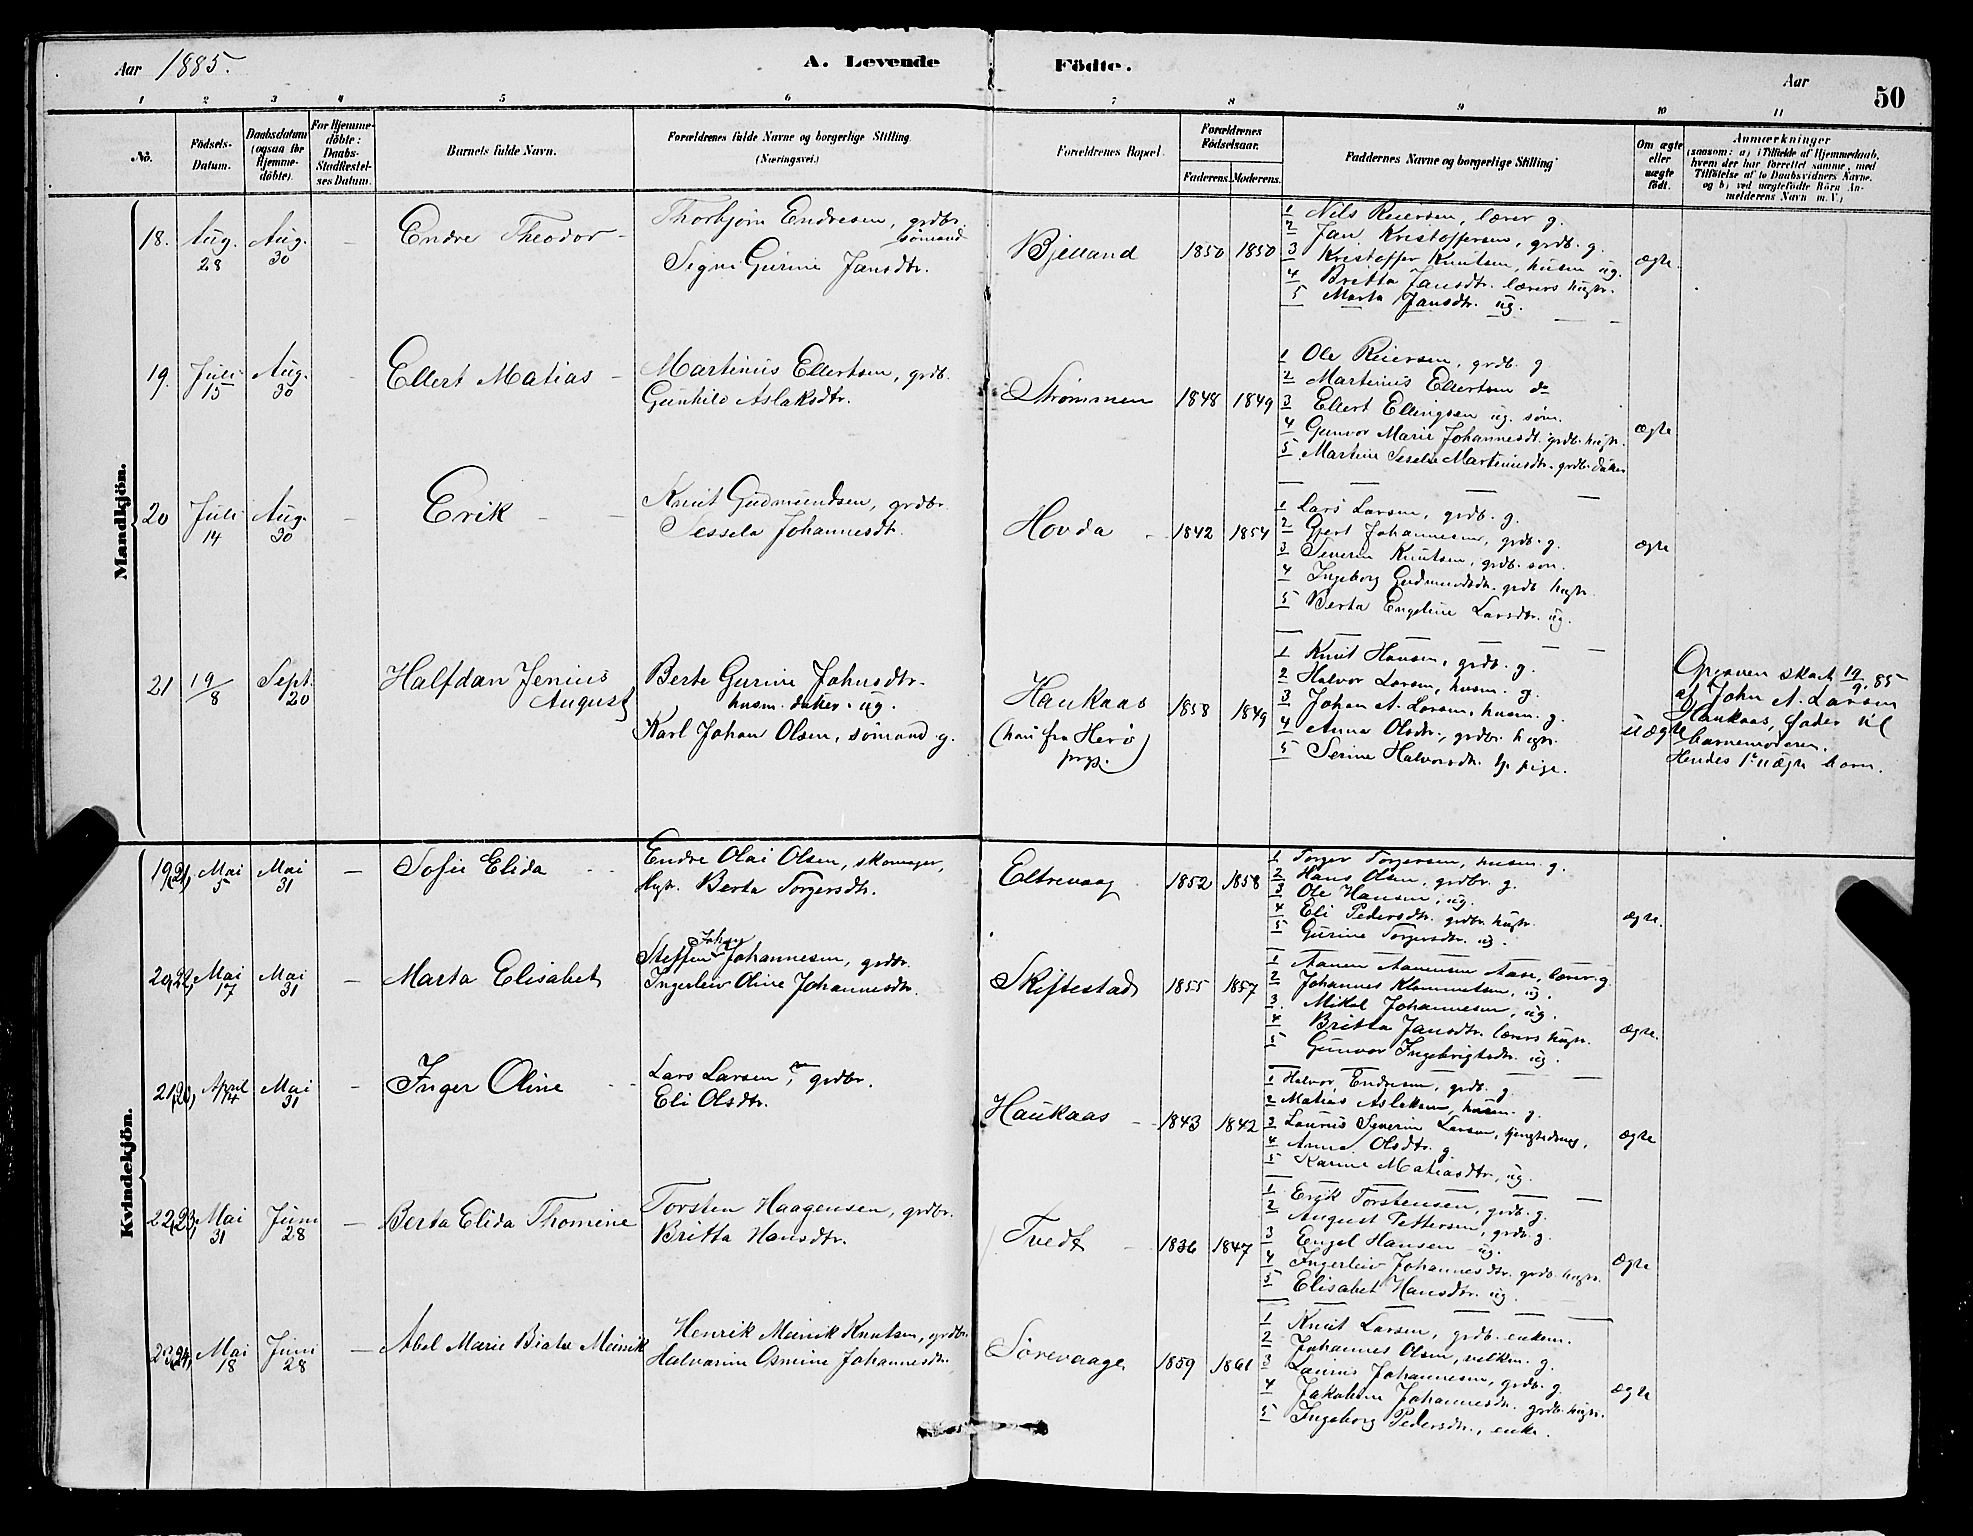 Aar 1885.
A. Levende Födte.
Aar
50
1 2 3 4 5 6 7 8 9 10 11
No.
Födsels-Datum.
Daabsdatum (ogsaa for Hjemmedöbte).
For Hjemmedöbte: Daabs-Stadfæstelses Datum.
Barnets fulde Navn.
Forældrenes fulde Navne og borgerlige Stilling (Næringsvei.)
Forældrenes Bopæl.
Forældrenes Födselsaar.
Faderens. Moderens.
Faddernes Navne og borgerlige Stilling
Om ægte eller uægte födt.
Anmærkninger
(saasom: a) i Tilfælde af Hjemmedaab, hvem der har forrettet samme, med Tilföielse af to Daabsvidners Navne, og b) ved uægtefödte Börn Anmelderens Navn m. V.)
Mandkjön.
18. Aug. 28 Aug. 30 – Endre Theodor –
Thorbjørn Endresen, grdbr. sömand
Signi Gurine Jansdtr.
Bjelland 1850 1850
1 Nils Reiersen, lærer g.
2 Jan Kristoffersen, grdb. g.
3 Kristoffer Knutsen, husm ug.
4 Britta Jansdtr. lærers hustr.
5 Marta Jansdtr. ug.
ægte.
19. Juli 15 Aug. 30 Ellert Matias –
Martinius Ellertsen, grdb.
Gunhild Aslaksdtr.
Strømmen 1848 1849
1 Ole Reiersen, grdb. g
2 Martinius Ellertsen do
3 Ellert Ellingsen ug. søm.
4 Gunvor Marie Johannesdt. grdb. hustr.
5 Martine Martiniusdtr. grdb.
ægte
20 Juli 14 Aug. 30 – Erik –
Knut Gudmundsen, grdbr.
Sessela Johannesdt.
Hovda 1842 1854
1 Lars Larsen, grdb. g.
2 Gjert Johannesen, grdb. g.
3 Severin Knutsen, grdb. søn.
4 Ingeborg Gudmundsdtr. grdb. hustr.
5 Berta Engeline Larsdtr. ug.
ægte
21 19/8 Sept. 20 Halfdan Jenius August
Berte Gurine Johnsdtr.
husm. datter. ug.
Karl Johan Olsen, sömand g.
Haukaas
(han fra Herö prgj.)
1858 1849
1 Knut Hansen, grdb. g.
2 Halvor Larsen, husm. g.
3 Johan A. Larsen, husm. g.
4 Anna Olsdtr., grdbr. hustr.
5 Serine Halvorsdtr. tj. pige.
uægte
Opgaven skar 19/9 85
af John A. Larsen
Haukaas, fader til
barnemoderen.
Hendes 1ste uægte barn.
Kvindekjön.
19 (21, Mai 5 Mai 31 – Sofie Elida
Endre Olai Olsen, skomager,
Hstr. Berta Torgersdtr.
Eltrevaag 1852 1858
1 Torger Torgersen, husm. g.
2 Hans Olsen, grdbr. g.
3 Ole Hansen, ug.
4 Eli Pedersdtr. grdbr. hustr.
5 Gurine Torgersdtr. ug.
ægte.
20 (22, Mai 17 Mai 31 – Marta Elisabet
Steffen Johan Johannesen, grdbr.
Ingerleiv Oline Johannesdtr.
Skiftestad 1855 1857
1 Aanen Aanensen Aase, lærer g.
2 Johannes Klemmetsen, ug.
3 Mikal Johannesen, ug.
4 Britta Jansdtr. lærers hustr.
5 Gunvor Ingebrigtsdtr. ug.
ægte.
21 (20, April 14 Mai 31 – Inger Oline
Lars Larsen, grdbr.
Eli Olsdtr.
Haukaas 1843 1842
1 Halvor Endresen, grdb. g
2 Matias Aslaksen, husm. g.
3 Laurus Severin Larsen,
4 Anna Olsdtr. g
5 Karine Matiasdtr., ug.
ægte
22 (23, Mai 31 Juni 28 – Berta Elida Thomine
Torsten Haagensen, grdbr.
Britta Hansdtr.
Tvedt – 1836 1847
1 Erik Torstensen, grdb. g.
2 August Pettersen, grdb. g.
3 Engel Hansen ug.
4 Ingerleiv Johannesdtr. grdb. hustr.
5 Elisabet Hansdtr. ug.
ægte
23 (24, Mai 18 Juni 28 – Abel Marie Beate Meinik
Henrik Meinik Knutsen, grdbr.
Halvarine Osmine Johannesdtr.
Sörevaage 1859 1861
1 Knut Larsen, grdb. enkem.
2 Johannes Olsen, g.
3 Laurus Johannesen, grdb. g.
4 Jakobine Johannesdtr. grdb. hustr.
5 Ingeborg Pedersdtr., enke.
ægte